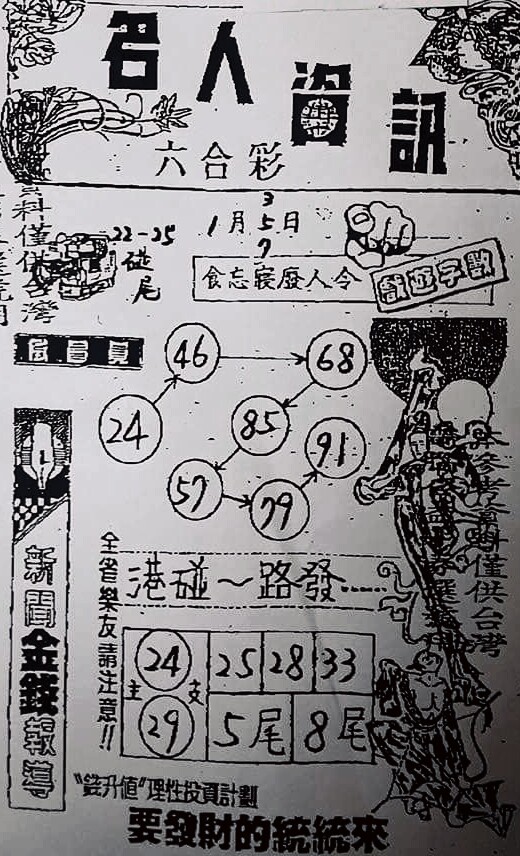 名人資訊
六合彩
22-25
碰
尾
1月5日
3
7
令人廢寢忘食
會員
46
68
24
85
91
57
79
新聞金錢報導
全省樂友請注意!!
港碰~路發.....
主
24
29
支
25 28 33
5尾 8尾
本參考資料僅供台灣
資料僅供台灣
理性投資計劃
要發財的統統來